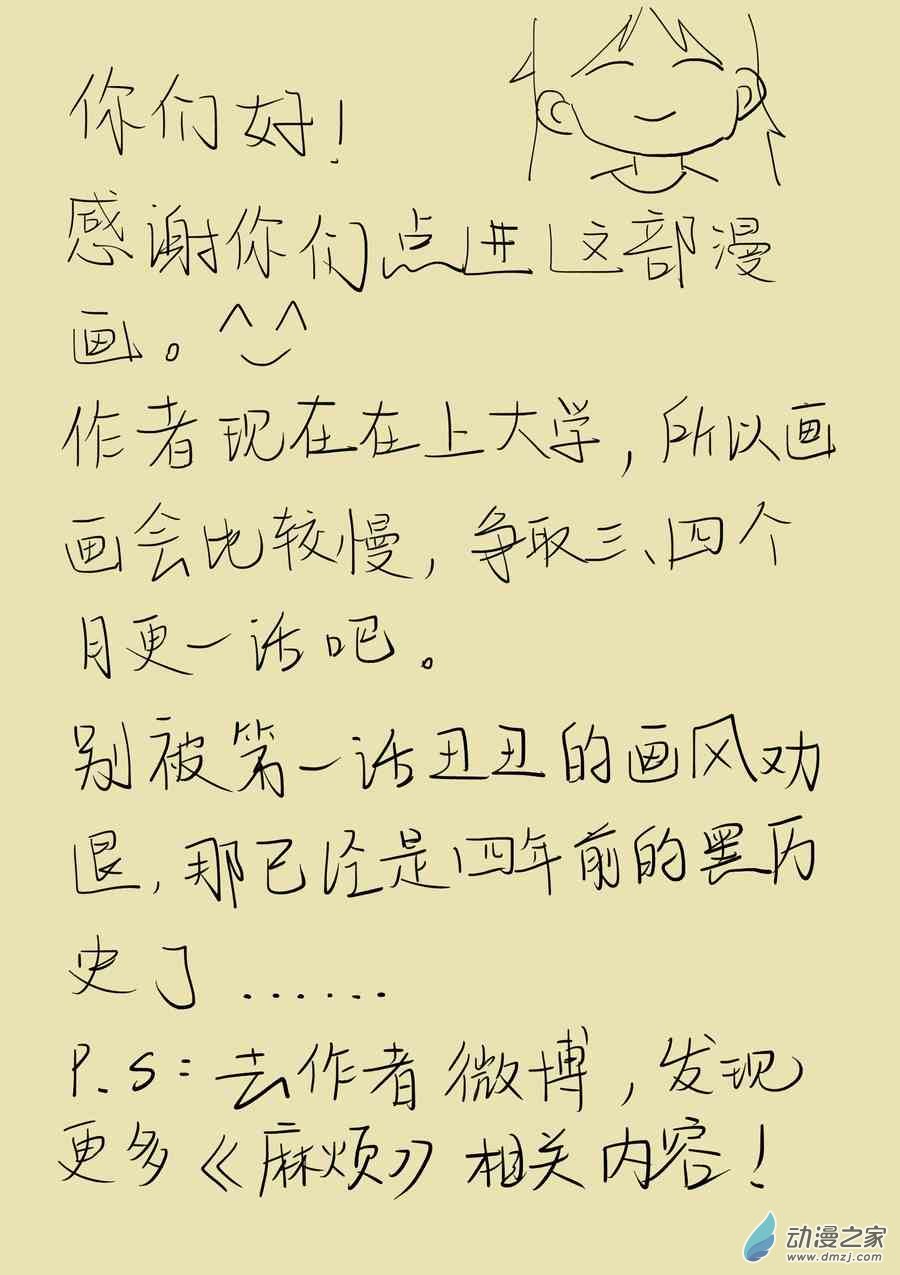 你们好!
感谢你们点进这部漫
画。^_^
作者现在在上大学,所以画
画会比较慢,争取三、四个
月更一话吧。
别被第一话丑丑的画风劝
退,那已经是四年前的黑历
史了......
P.S:去作者微博,发现
更多《麻烦》相关内容!
动漫之家
www.dmzj.com